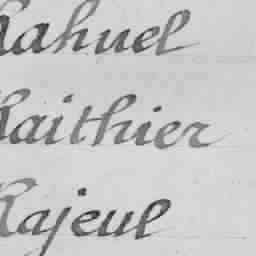 Rahuel
Raithier
Rajeul